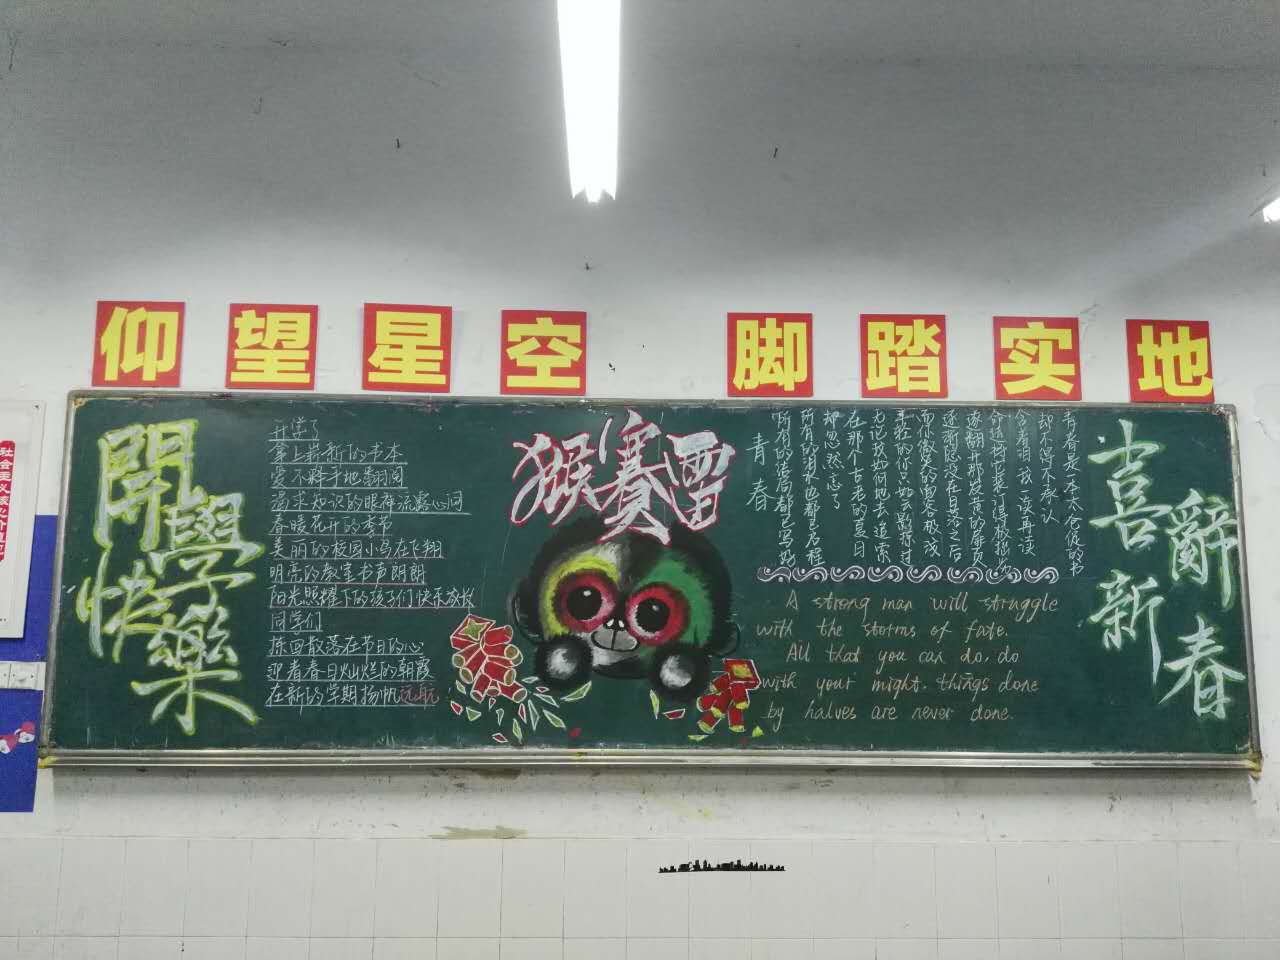 仰望星空 脚踏实地
開學快樂
开学了
拿上崭新的书本
爱不释手地翻阅
渴求知识的眼神流露心间
春暖花开的季节
美丽的校园小鸟在飞翔
明亮的教室书声朗朗
阳光照耀下的孩子们快乐
同学们
拣回散落在节日的心
迎着春日灿烂的朝霞
在新的学期扬帆远航
猴賽雷
青春
所有的结局都已写好
所有的泪水也都已启程
却忽然忘了
在那个古老的夏日
我如何地去追索
年轻的你只如云影掠过
而你微笑的面容极浅
逐渐隐没在日落之后
遂翻开那发黄的扉页
命运将它装订得极拙劣
含着泪 我一读再读
却不得不承认
青春是一本太仓促的书
A strong man will struggle
with the storms of fate.
All that you can do, do
with your might. things done
by halves are never done.
喜辭新春
社会主义核心价值观